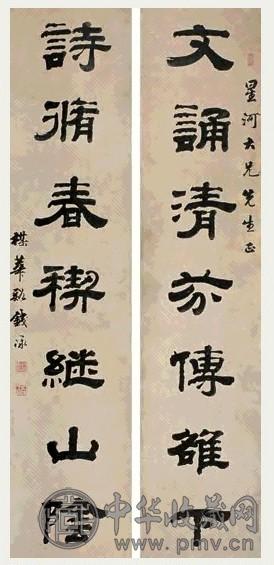 星河大兄先生正
文誦清芬傳雒下
詩脩春禊繼山陰
楳華谿錢泳
中华收藏网
www.pmv.cn